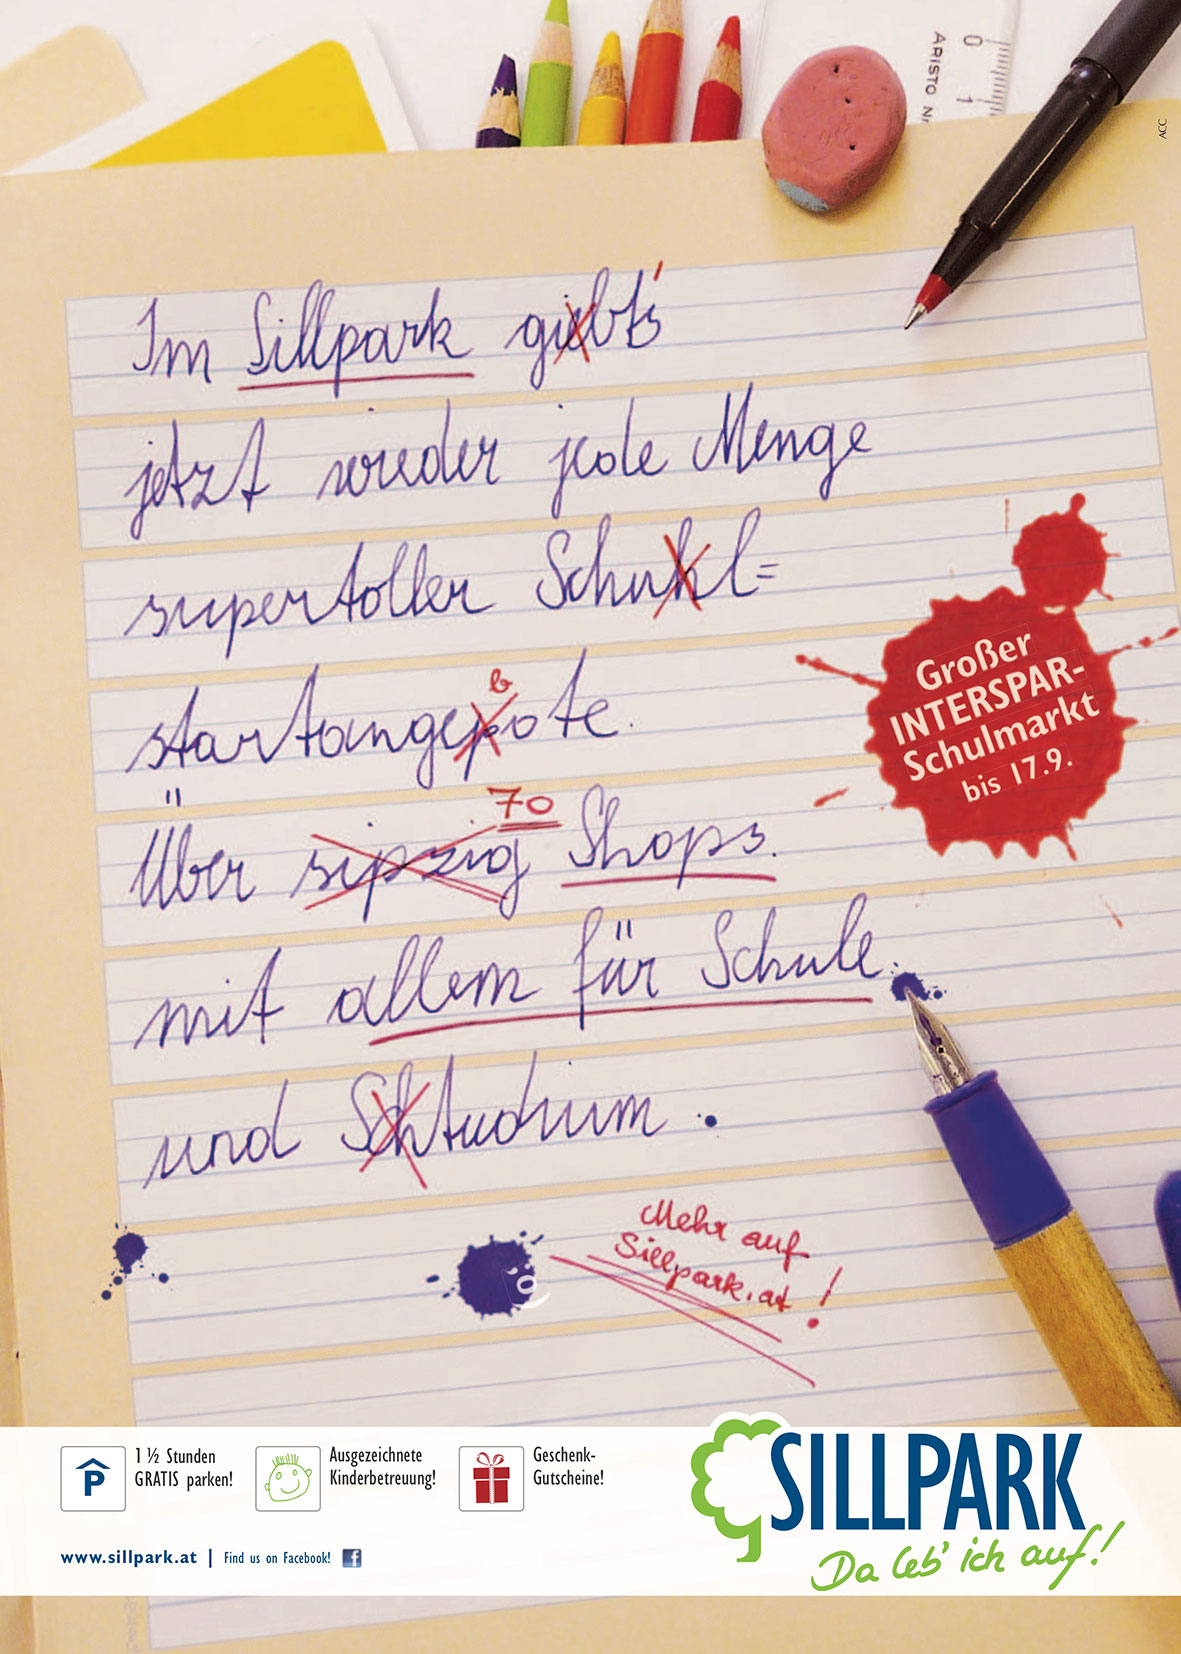 ARISTO Nr
0
1
ACC
Im Sillpark giebt's
jetzt wieder jede Menge
supertoller Schuhl=
b
startangepote.
70
Über sipzig Shops.
mit allem für Schule.
und Schtudium.
Großer
INTERSPAR-
Schulmarkt
bis 17.9.
Mehr auf
Sillpark.at!
P
1 ½ Stunden
GRATIS parken!
Ausgezeichnete
Kinderbetreuung!
Geschenk-
Gutscheine!
www.sillpark.at | Find us on Facebook! f
SILLPARK
Da leb' ich auf!